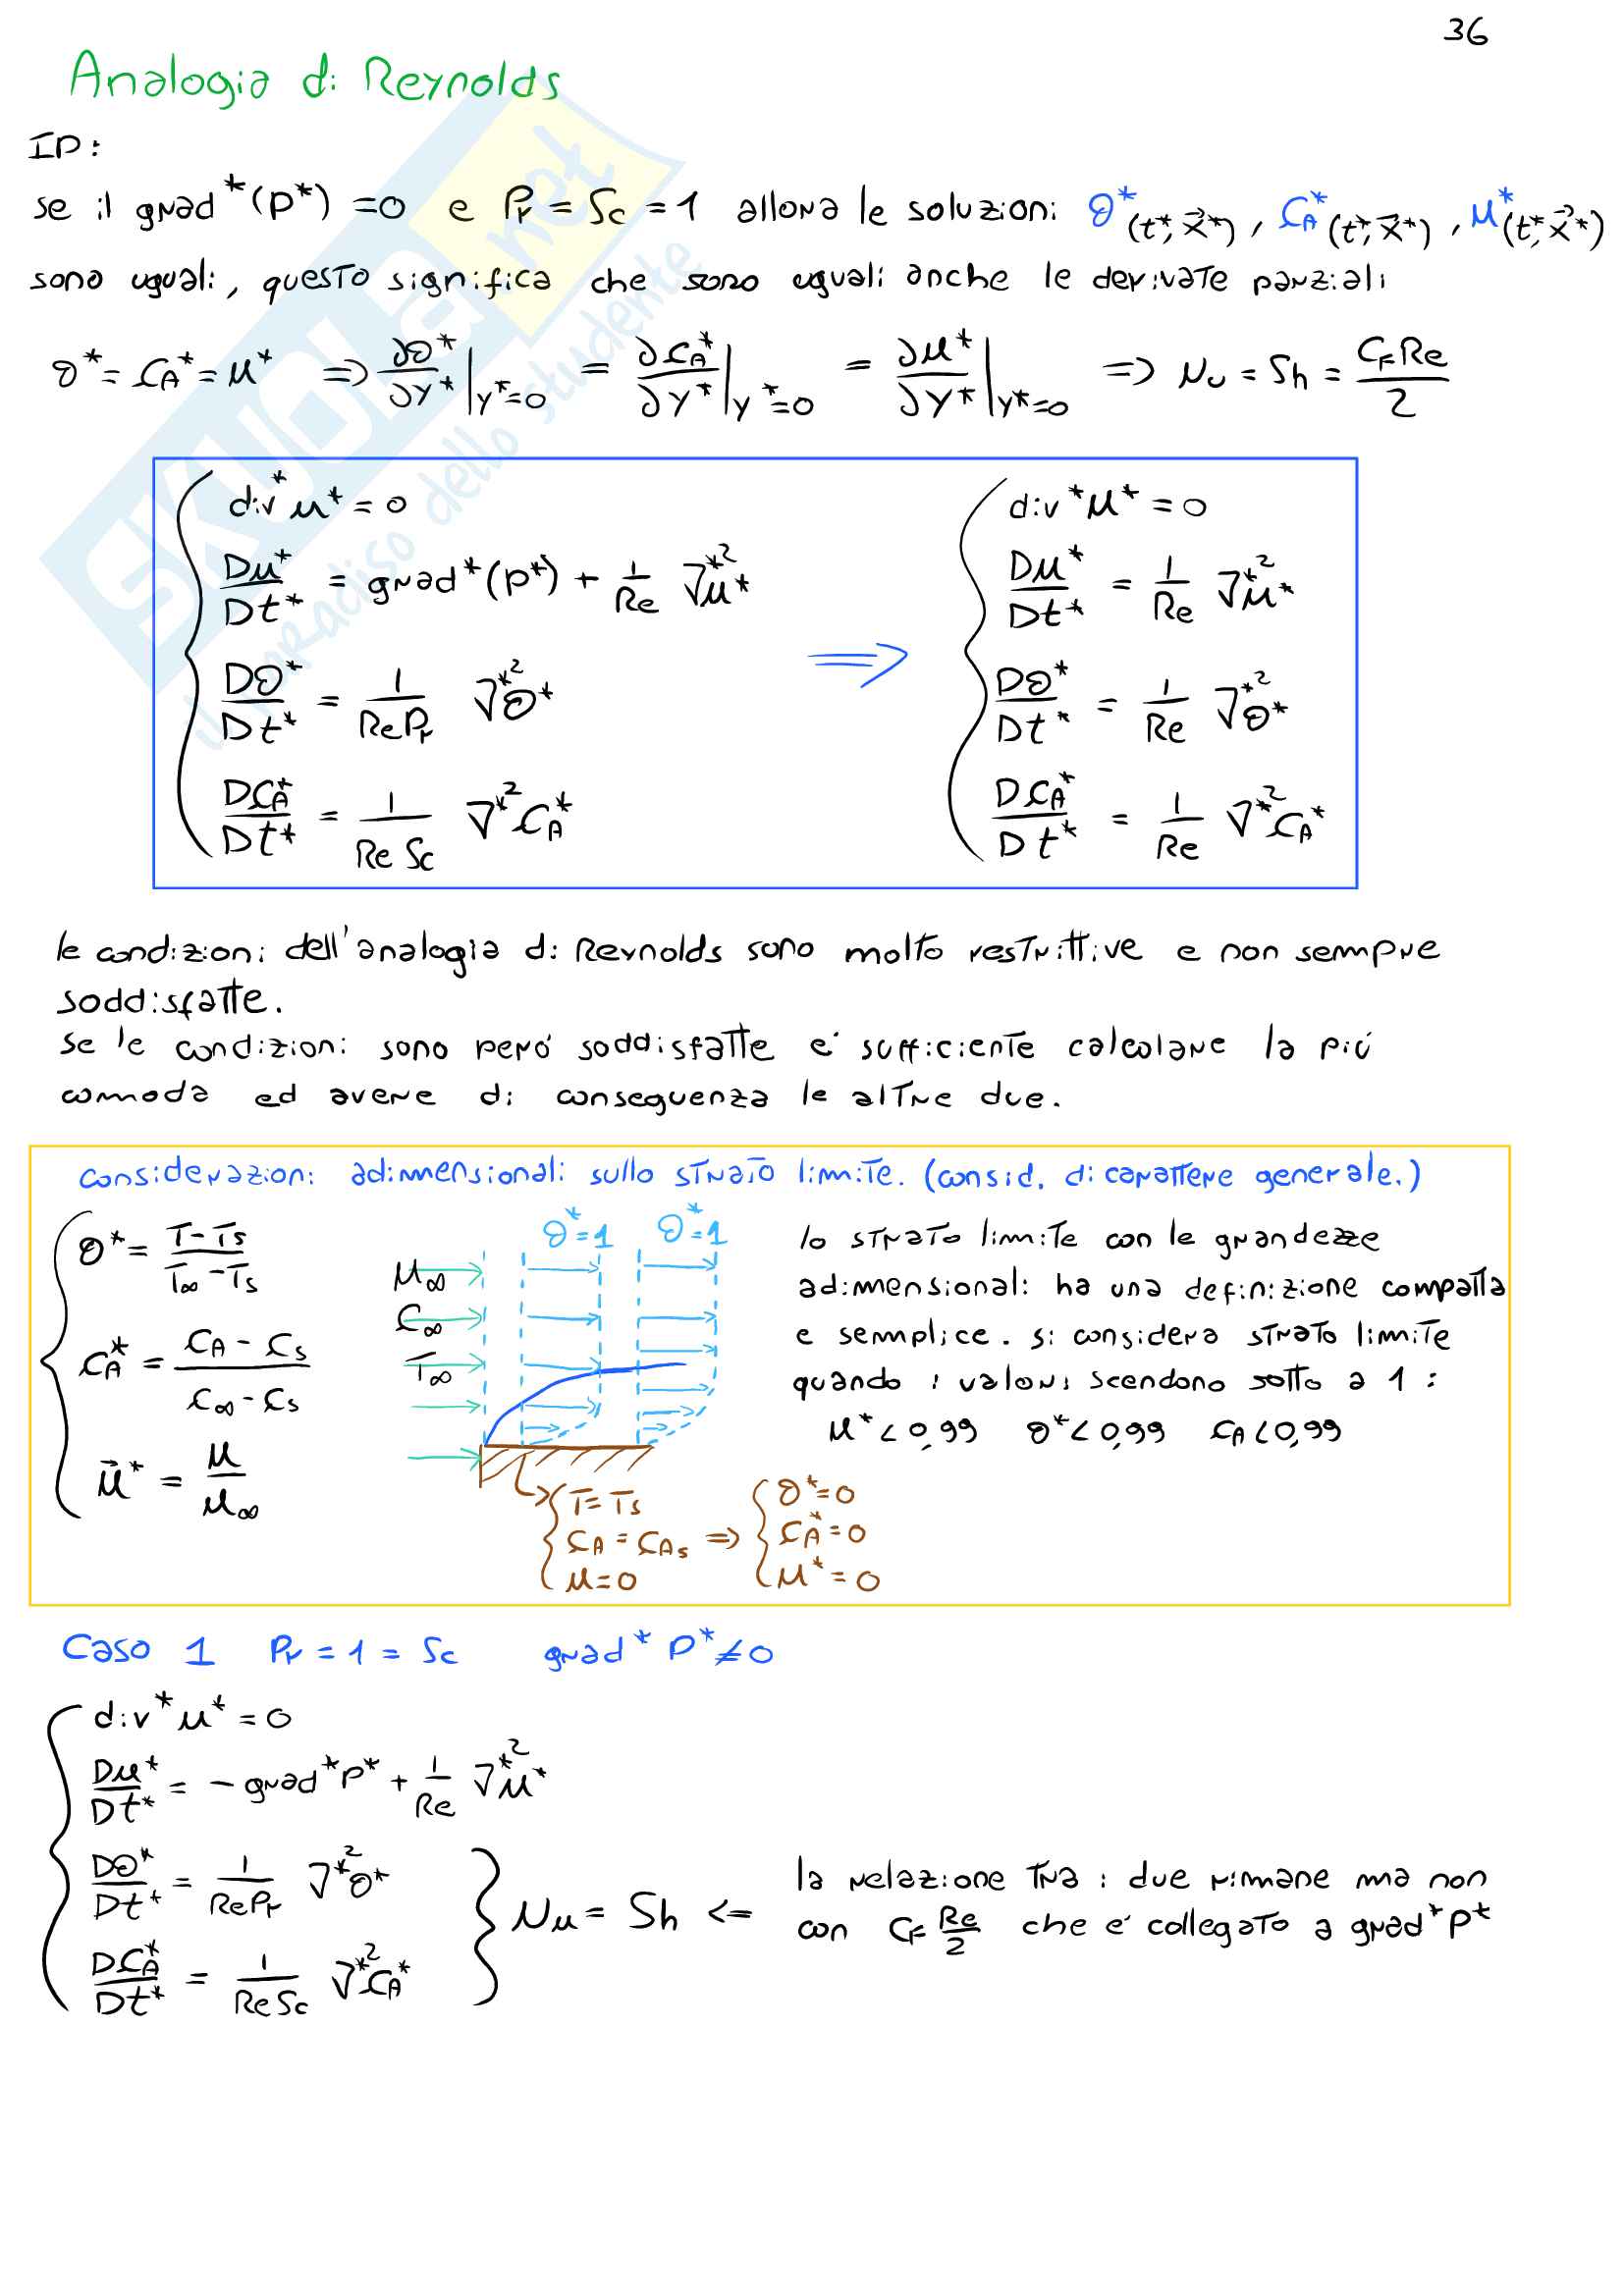 36
Analogia di Reynolds
IP:
se il grad*(P*) = 0 e Pr = Sc = 1 allora le soluzioni θ*(t*, x⃗*), CA*(t*, x⃗*), μ*(t*, x⃗*)
sono uguali, questo significa che sono uguali anche le derivate parziali
θ* = CA* = μ* ⟹ ∂θ*/∂y*|y*=0 = ∂CA*/∂y*|y*=0 = ∂μ*/∂y*|y*=0 ⟹ Nu = Sh = CF Re/2
div* μ* = 0
Dμ*/Dt* = grad*(p*) + 1/Re ∇*² μ*
Dθ*/Dt* = 1/(Re Pr) ∇*² θ*
DCA*/Dt* = 1/(Re Sc) ∇*² CA*
⟹
div* μ* = 0
Dμ*/Dt* = 1/Re ∇*² μ*
Dθ*/Dt* = 1/Re ∇*² θ*
DCA*/Dt* = 1/Re ∇*² CA*
le condizioni dell'analogia di Reynolds sono molto restrittive e non sempre
soddisfatte.
se le condizioni sono peró soddisfatte e' sufficiente calcolare la piú
comoda ed avere di conseguenza le altre due.
considerazioni adimensionali sullo strato limite. (consid. di carattere generale.)
θ* = (T - Ts)/(T∞ - Ts)
CA* = (CA - Cs)/(C∞ - Cs)
μ⃗* = μ/μ∞
θ* = 1 θ* = 1
μ∞
C∞
T∞
T = Ts
CA = CAs
μ = 0
⟹
θ* = 0
CA* = 0
μ* = 0
lo strato limite con le grandezze
adimensionali ha una definizione compatta
e semplice. si considera strato limite
quando i valori scendono sotto a 1 :
μ* < 0,99 θ* < 0,99 CA < 0,99
Caso 1 Pr = 1 = Sc grad* P* ≠ 0
div* μ* = 0
Dμ*/Dt* = - grad* p* + 1/Re ∇*² μ*
Dθ*/Dt* = 1/(Re Pr) ∇*² θ*
DCA*/Dt* = 1/(Re Sc) ∇*² CA*
} Nu = Sh <=
la relazione tra i due rimane ma non
con CF Re/2 che e' collegato a grad* P*
SKUOLA.net
il paradiso dello studente